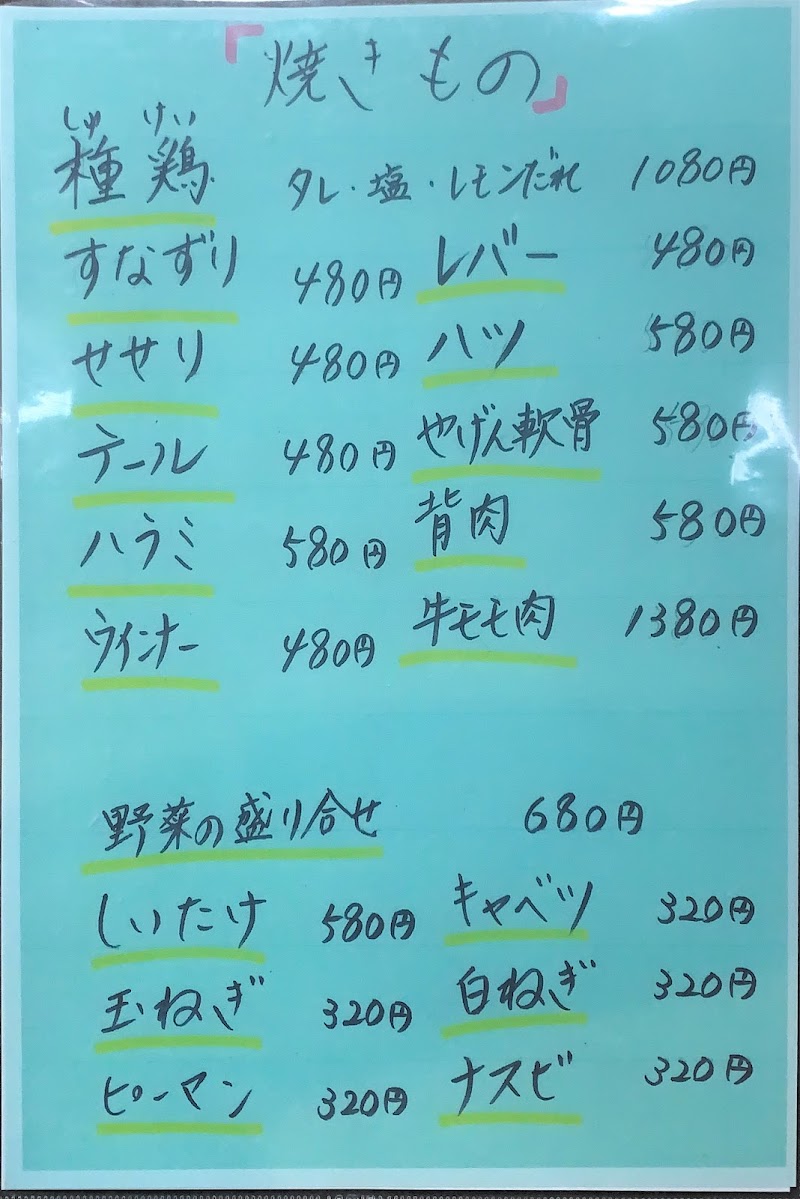 「焼きもの」
しゅ けい
種鶏 タレ・塩・レモンだれ 1080円
すなずり 480円 レバー 480円
せせり 480円 ハツ 580円
テール 480円 やげん軟骨 580円
ハラミ 580円 背肉 580円
ウインナー 480円 牛モモ肉 1380円
野菜の盛り合せ 680円
しいたけ 580円 キャベツ 320円
玉ねぎ 320円 白ねぎ 320円
ピーマン 320円 ナスビ 320円